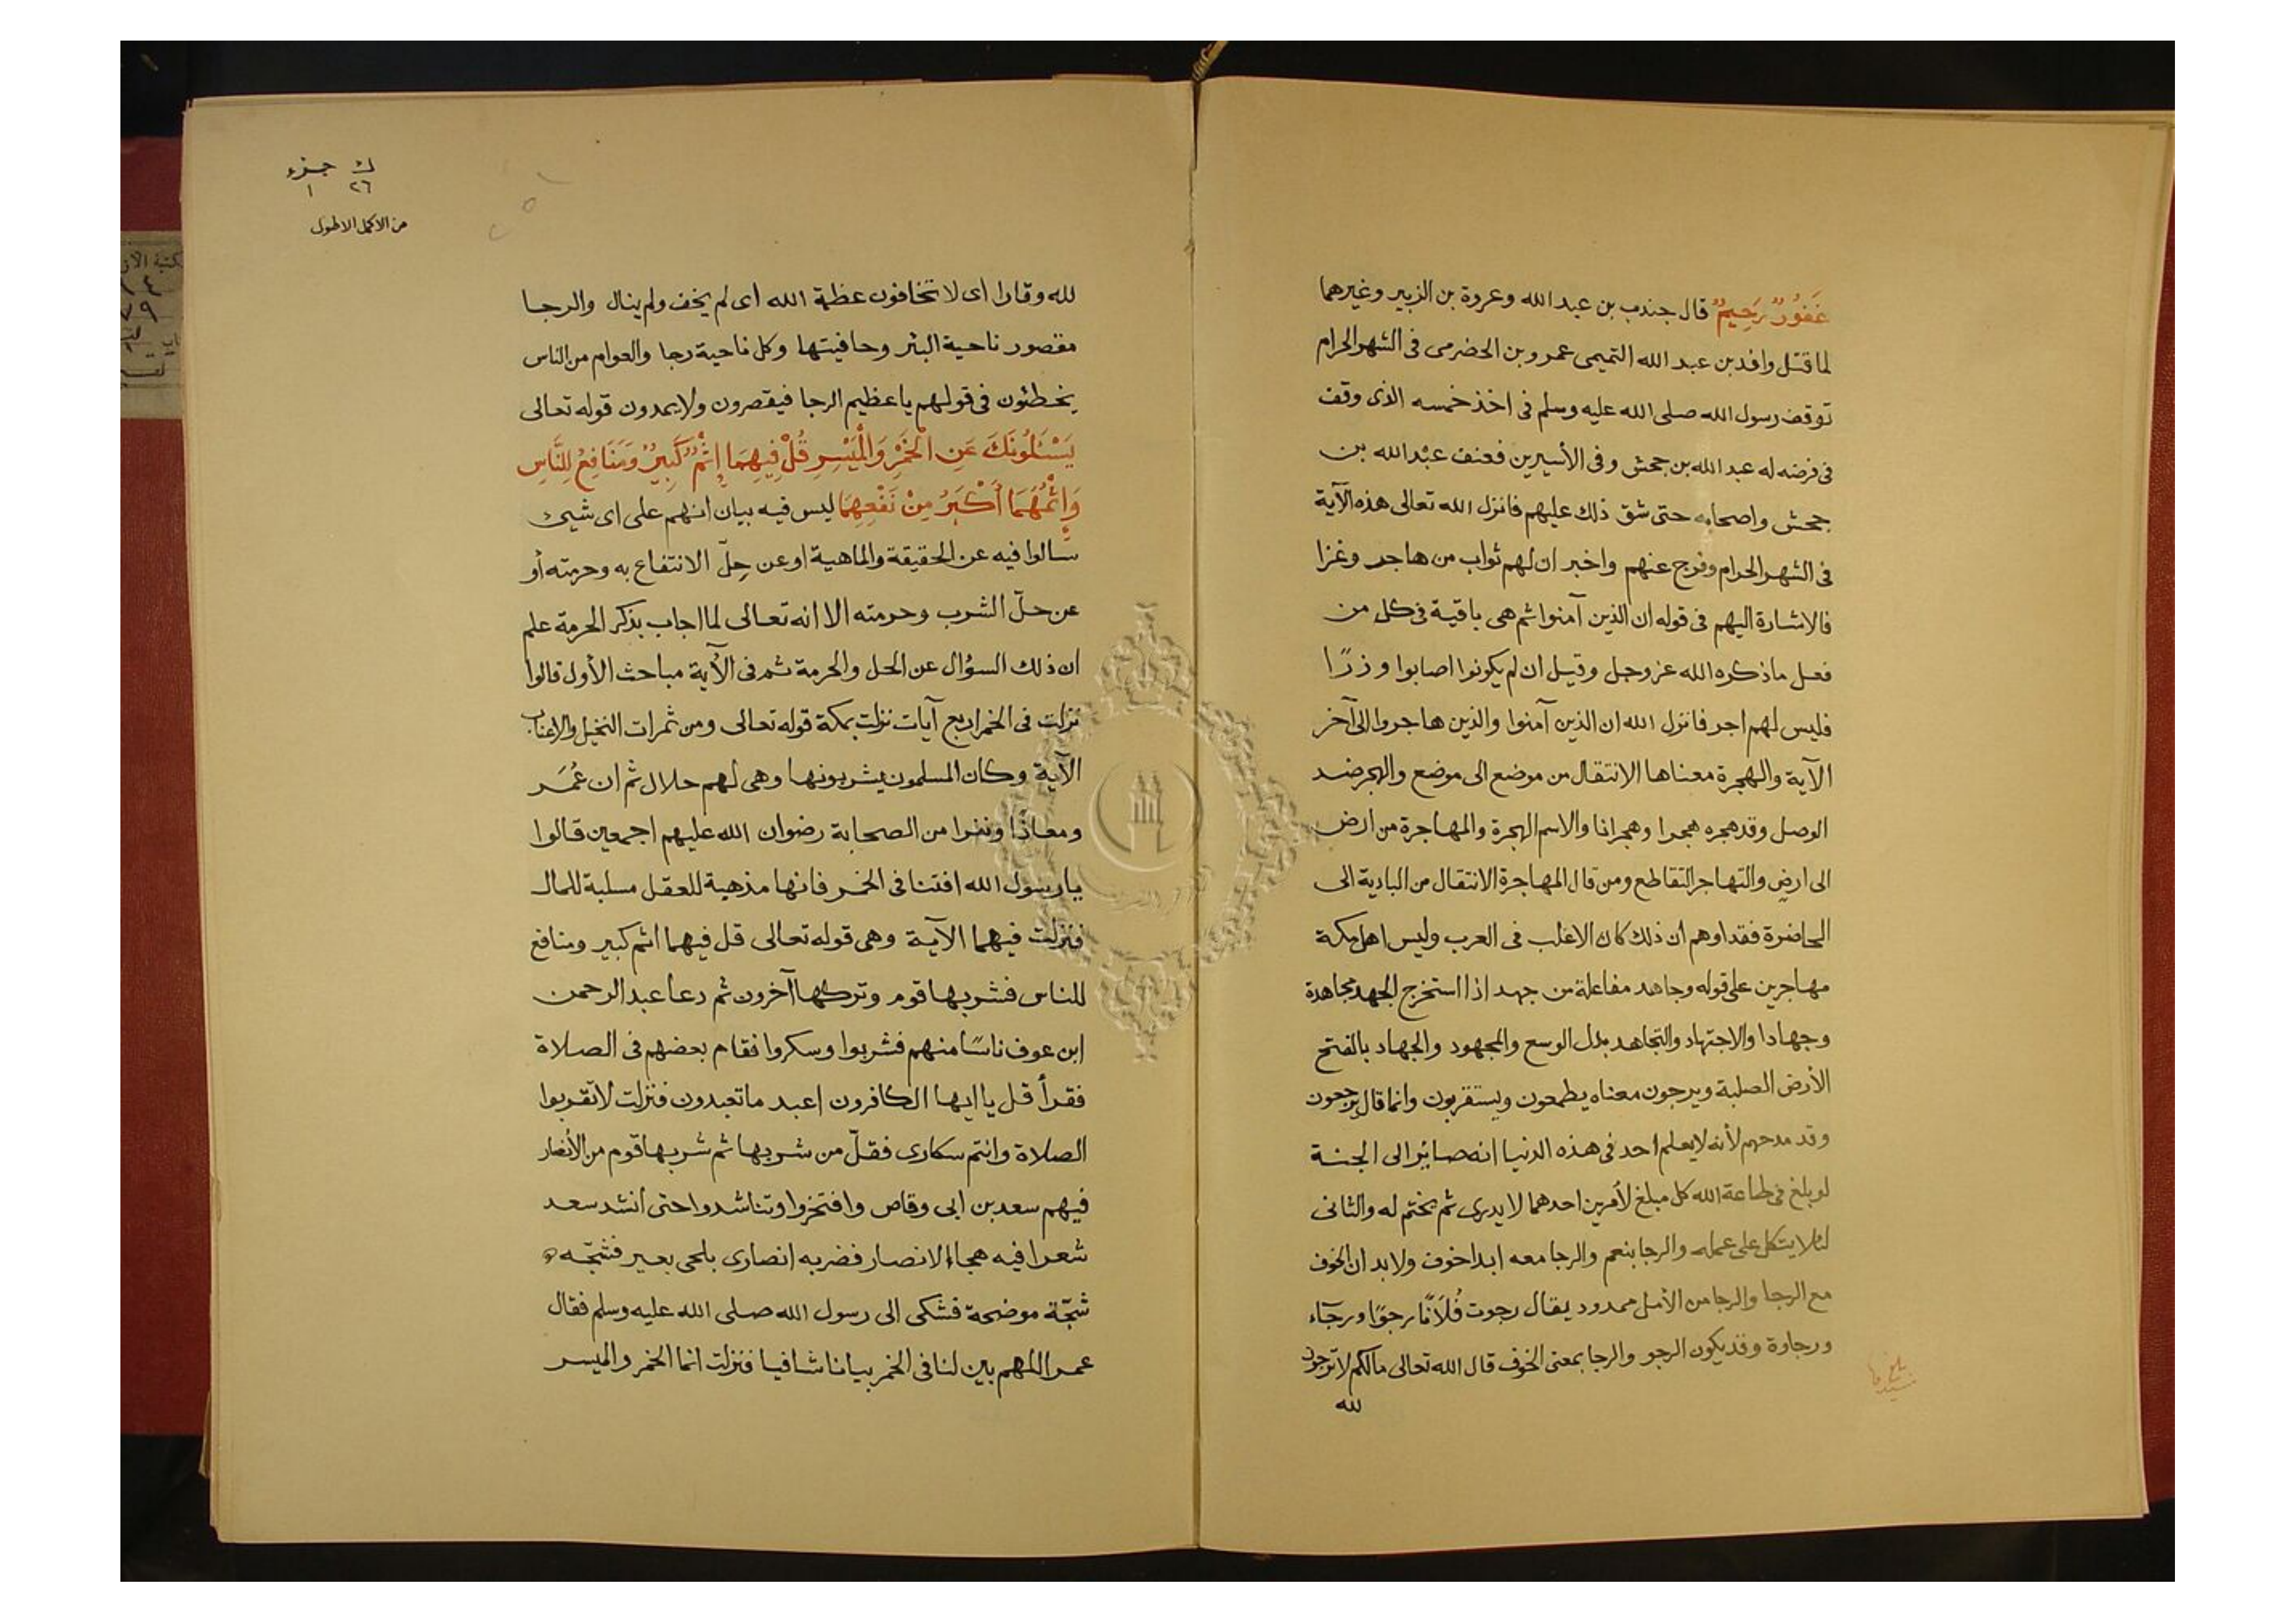 غَفُورٌ رَحِيمٌ قال جندب بن عبد الله وعروة بن الزبير وغيرهما
لما قتل واقد بن عبد الله التميمى عمرو بن الحضرمى فى الشهر الحرام
توقف رسول الله صلى الله عليه وسلم فى اخذ خمسه الذى وقف
فى فرضه له عبد الله بن جحش وفى الأسيرين فعنف عبد الله بن
جحش واصحابه حتى شق ذلك عليهم فانزل الله تعالى هذه الآية
فى الشهر الحرام وفرج عنهم واخبر ان لهم ثواب من هاجر وغزا
فالاشارة اليهم فى قوله ان الذين آمنوا ثم هى باقية فى كل من
فعل ما ذكره الله عز وجل وقيل ان لم يكونوا اصابوا وزرًا
فليس لهم اجر فانزل الله ان الذين آمنوا والذين هاجروا الى آخر
الآية والهجرة معناها الانتقال من موضع الى موضع والهجر ضد
الوصل وقد هجره هجرا وهجرانا والاسم الهجرة والمهاجرة من أرض
الى ارض والتهاجر التقاطع ومن قال المهاجرة الانتقال من البادية الى
الحاضرة فقد اوهم ان ذلك كان الاغلب فى العرب وليس اهل مكة
مهاجرين على قوله وجاهد مفاعلة من جهد اذا استخرج الجهد مجاهدة
وجهادا والاجتهاد والتجاهد بذل الوسع والمجهود والجهاد بالفتح
الأرض الصلبة ويرجون معناه يطمعون ويستقربون وانما قال يرجعون
وقد مدحهم لأنه لا يعلم احد فى هذه الدنيا انه صائر الى الجنة
لو بلغ فى طاعة الله كل مبلغ لأمرين احدهما لا يدرى ثم يختم له والثانى
لئلا يتكل على عمله والرجا بنعم والرجا معه ابدا خوف ولا بد ان الخوف
مع الرجا والرجا من الأمل ممدود يقال رجوت فُلَانًا رجوًا ورجآء
ورجاوة وقد يكون الرجو والرجا بمعنى الخوف قال الله تعالى مالكم لا ترجون
لله
ك جزء
٢٦ ١
من الاكمل الاطول
لله وقارا اى لا تخافون عظمة الله اى لم يخف ولم ينال والرجا
مقصور ناحية البئر وحافيتها وكل ناحية رجا والعوام من الناس
يخطئون فى قولهم يا عظيم الرجا فيقصرون ولا يمدون قوله تعالى
يَسْـَٔلُونَكَ عَنِ الْخَمْرِ وَالْمَيْسِرِ قُلْ فِيهِمَا إِثْمٌ كَبِيرٌ وَمَنَافِعُ لِلنَّاسِ
وَإِثْمُهُمَا أَكْبَرُ مِنْ نَفْعِهِمَا ليس فيه بيان انهم على اى شيئ
سالوا فيه عن الحقيقة والماهية او عن حِلّ الانتفاع به وحرمته أو
عن حلّ الشرب وحرمته الا انه تعالى لما اجاب بذكر الحرمة علم
ان ذلك السؤال عن الحل والحرمة ثم فى الآية مباحث الأول قالوا
نزلت فى الخمر اربع آيات نزلت بمكة قوله تعالى ومن ثمرات النخيل والاعناب
الآية وكان المسلمون يشربونها وهى لهم حلال ثم ان عُمَر
ومعاذًا ونفرا من الصحابة رضوان الله عليهم اجمعين قالوا
يا رسول الله افتنا فى الخمر فانها مذهبة للعقل مسلبة للمال
فنزلت فيهما الآية وهى قوله تعالى قل فيهما اثم كبير ومنافع
للناس فشربها قوم وتركها آخرون ثم دعا عبد الرحمن
ابن عوف ناسًا منهم فشربوا وسكروا فقام بعضهم فى الصلاة
فقرأ قل يا ايها الكافرون اعبد ما تعبدون فنزلت لا تقربوا
الصلاة وانتم سكارى فقلّ من شربها ثم شربها قوم من الأنصار
فيهم سعد بن ابى وقاص وافتخروا وتناشدوا حتى أنشد سعد
شعرا فيه هجاء الانصار فضربه انصارى بلحى بعير فشجّه
شجّة موضحة فشكى الى رسول الله صلى الله عليه وسلم فقال
عمر اللهم بين لنا فى الخمر بيانا شافيا فنزلت انما الخمر والميسر